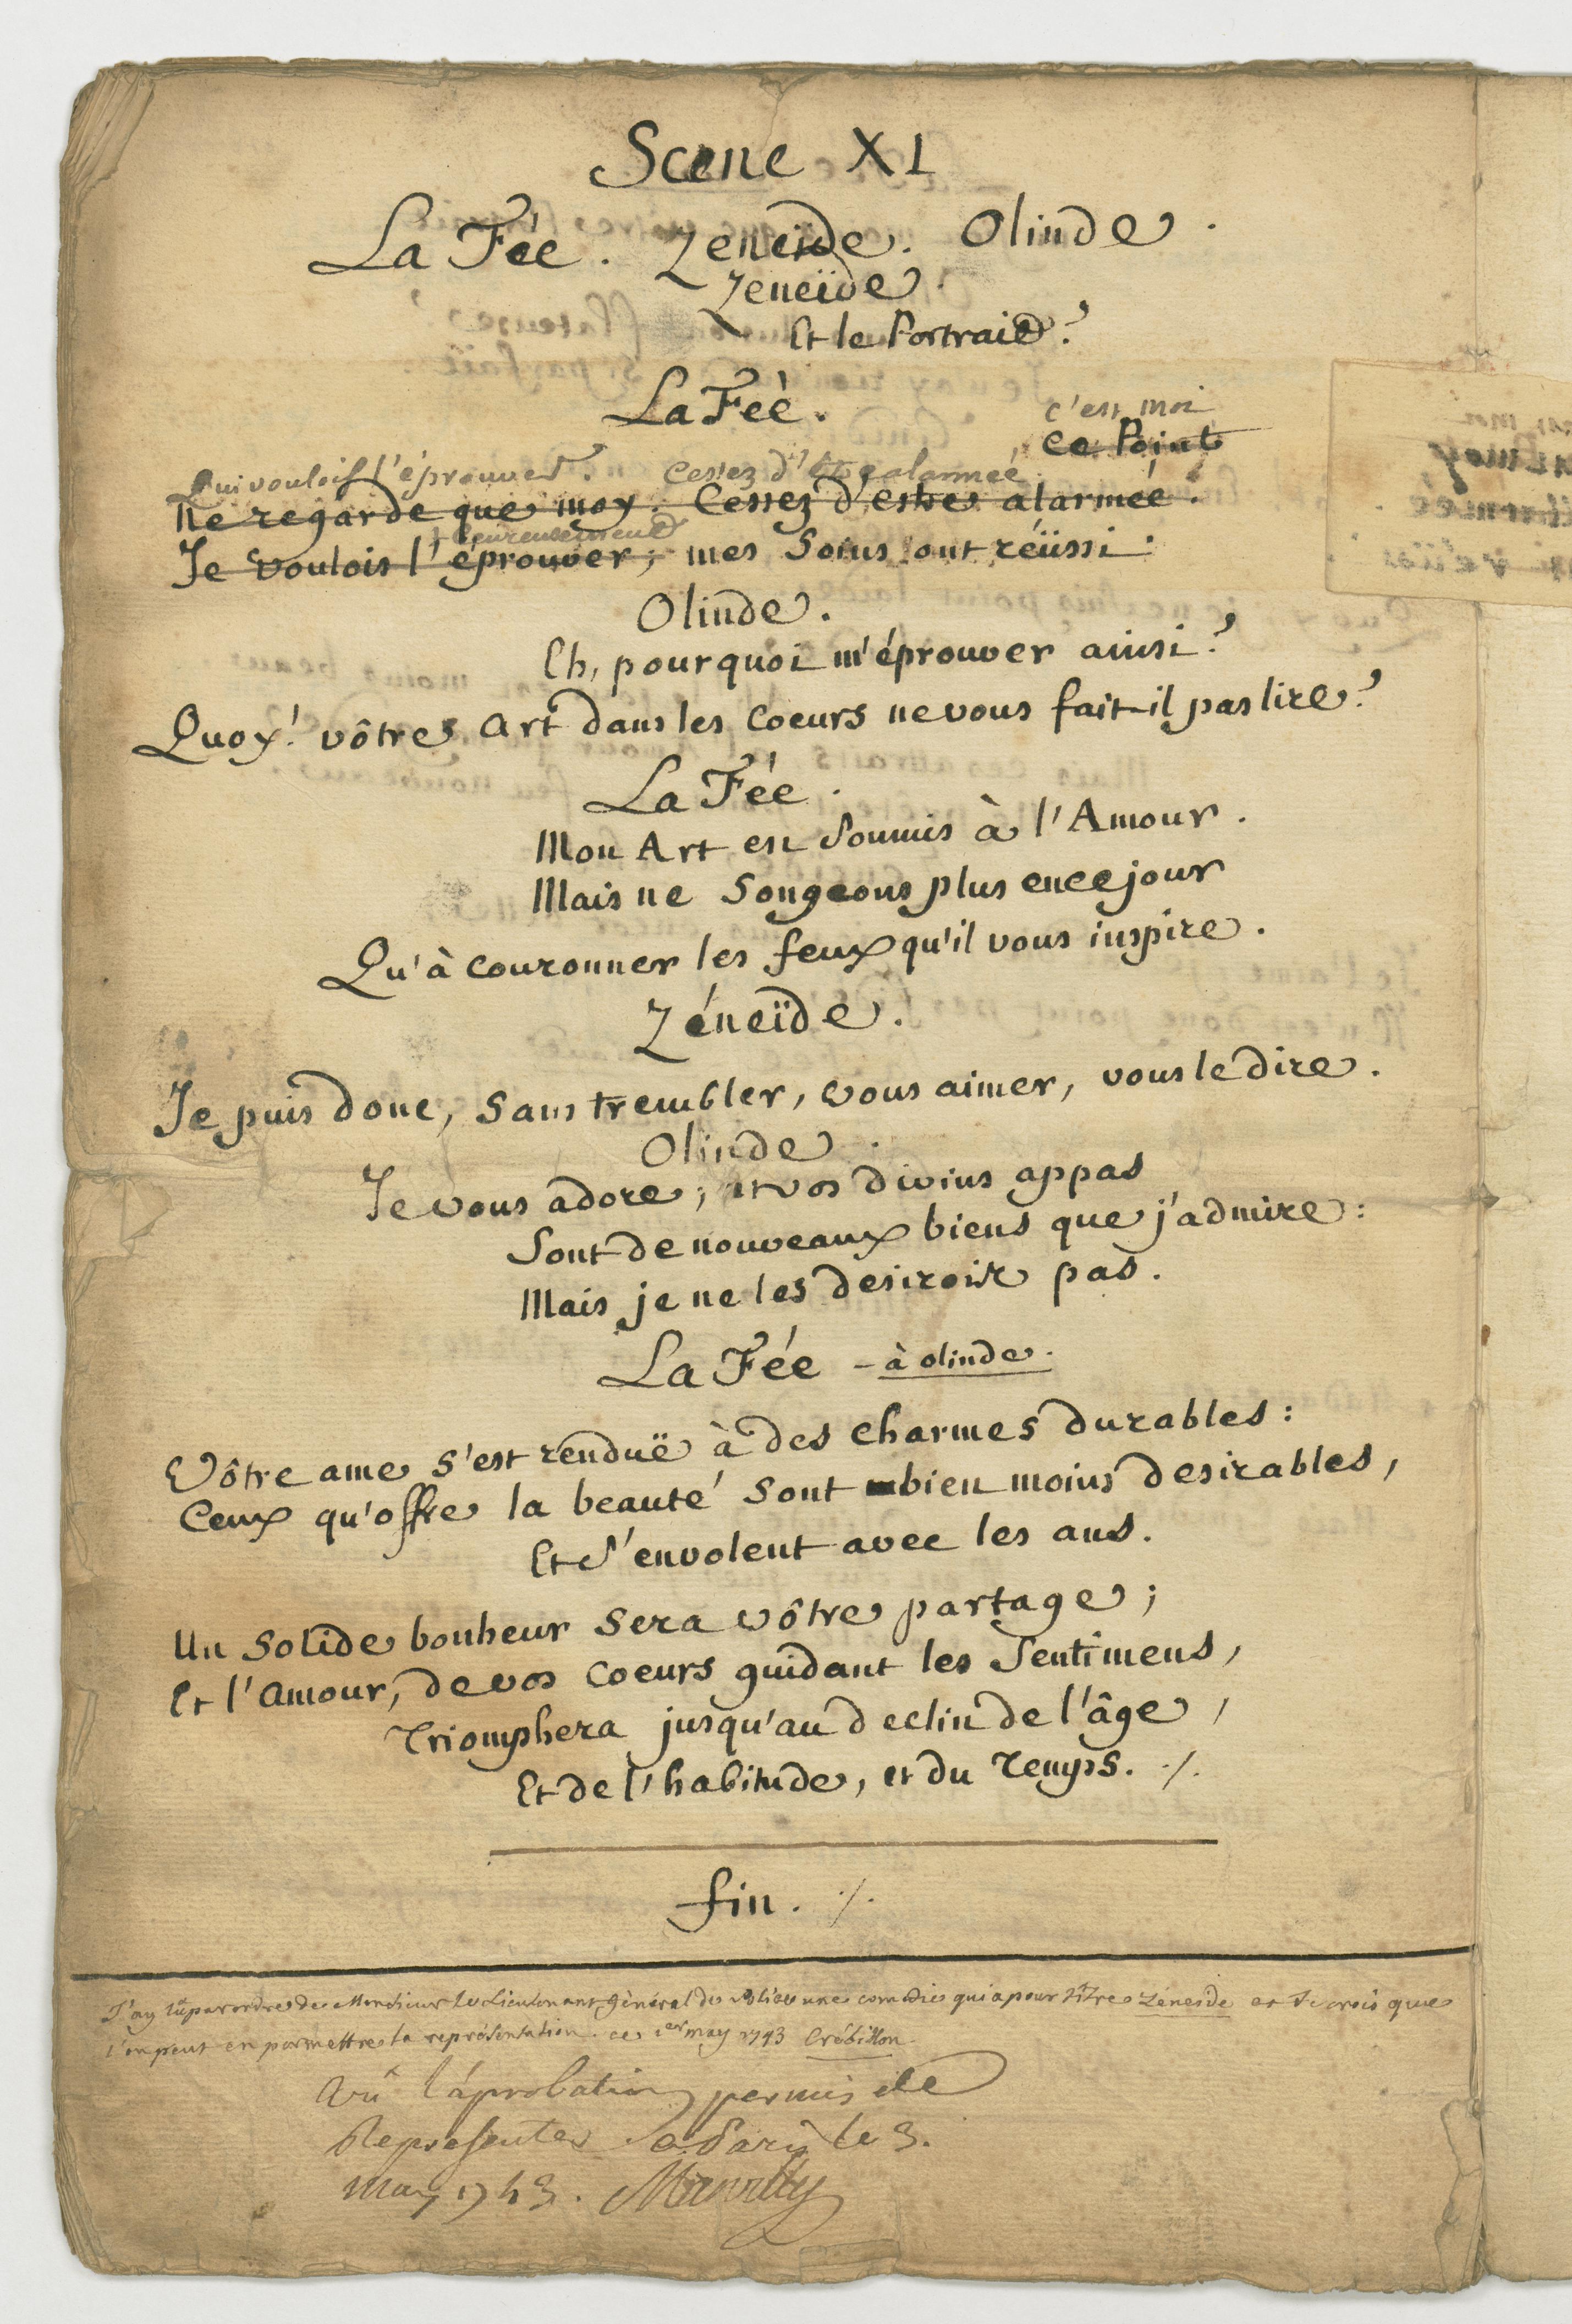 Scene XI
La Fée. Zeneïde. Olinde.
Zeneïde.
Et le Portrait?
La Feé.
c'est moi
Ce Point
Qui voulois l'éprouver. Cessez d'être alarmeé
Ne regarde que moy. Cessez d'estre alarmeé.
heureusement
Je voulois l'éprouver; mes Soins ont réüssi.
Olinde.
Eh, pourquoi m'éprouver ainsi?
Quoy! vôtre Art dans les Coeurs ne vous fait-il pas lire?
La Fée.
Mon Art est Soumis à l'Amour.
Mais ne Songeons plus en ce jour
Qu'à Couronner les feux qu'il vous inspire.
Zéneïde.
Je puis donc, Sans trembler, vous aimer, vous le dire.
Olinde.
Je vous adore; et vos divins appas
Sont de nouveaux biens que j'admire:
Mais je ne les desirois pas.
La Fée - à olinde.
Vôtre ame s'est renduë à des Charmes durables:
Ceux qu'offre la beauté Sont bien moins desirables,
Et S'envolent avec les ans.
Un Solide bonheur Sera vôtre partage;
Et l'Amour, de vos Coeurs guidant les Sentimens,
Triomphera jusqu'au declin de l'âge,
Et de l'habitude, et du Temps. ./.
fin. ./.
J'ay lû par ordre de Monsieur le Lieutenant général de Police une comedie qui a pour titre Zeneide et Je crois que
l'on peut en permettre la représentation. ce 1er may 1743 Crébillon.
Vû l'aprobation permis de
Representer a Paris le 3.
may 1743. Marville